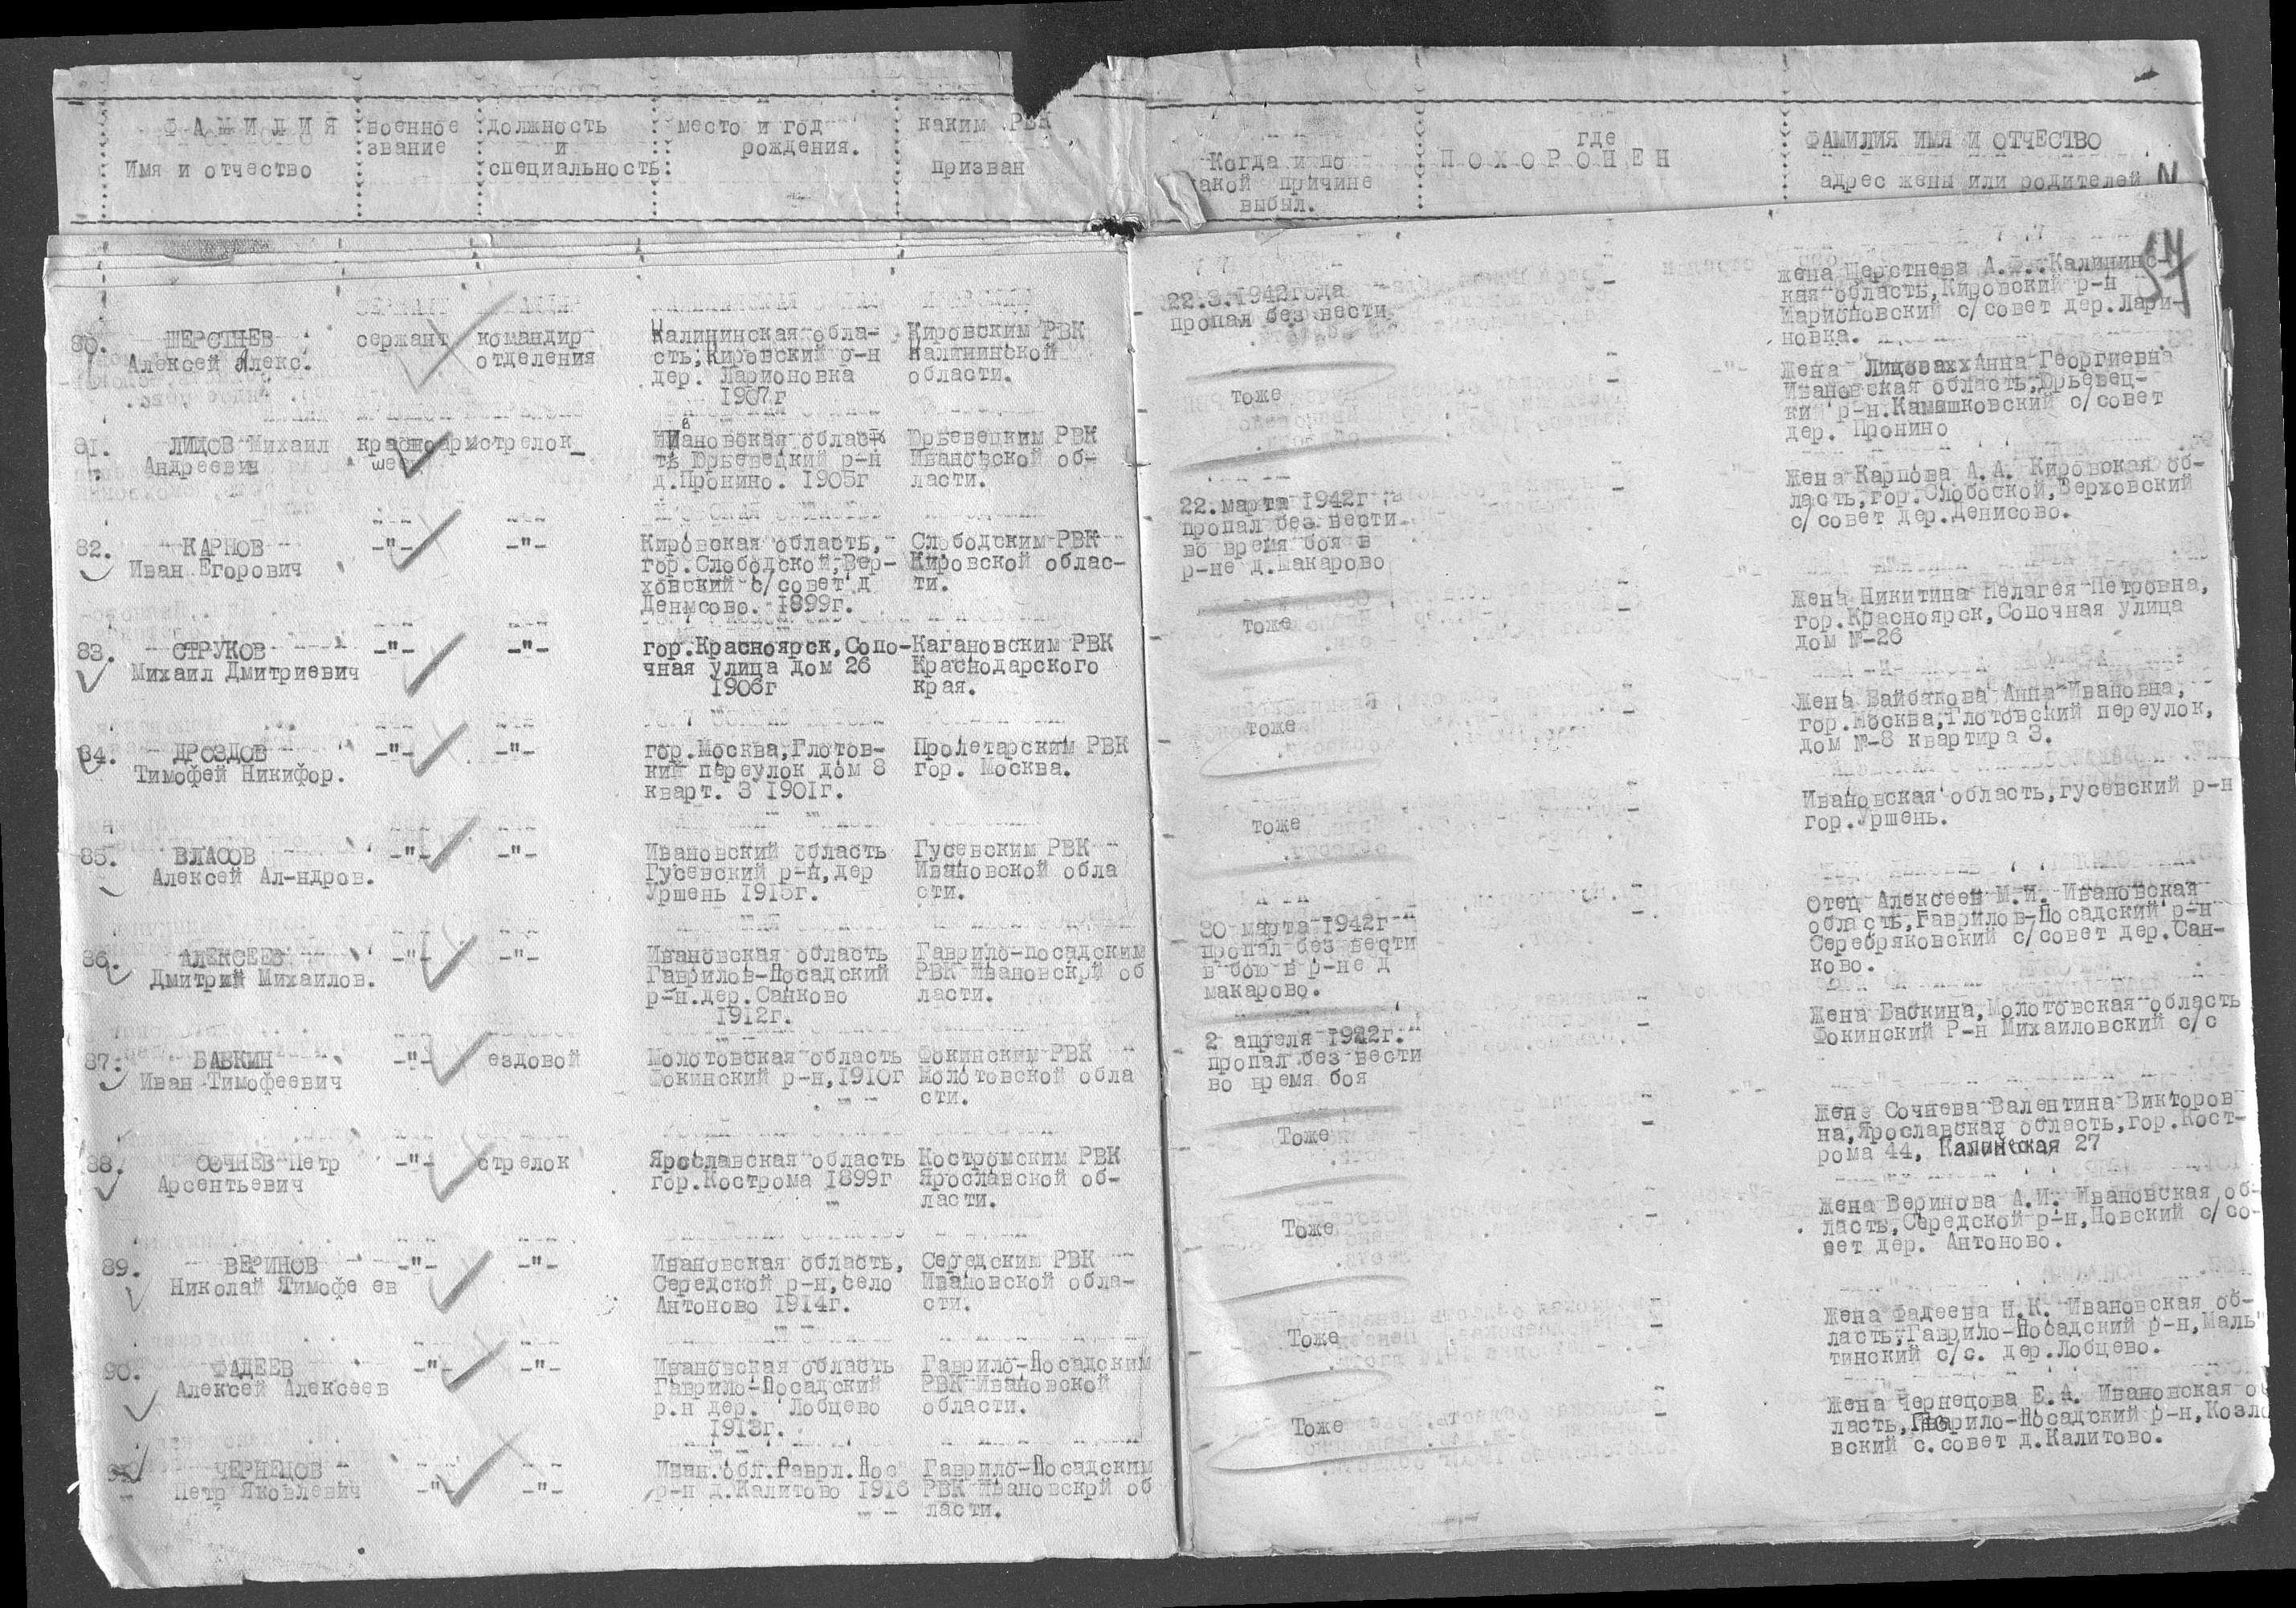 ФАМИЛИЯ
Имя и отчество
военное
звание
должность
и
специальность
место и год
рождения.
каким РВК
призван
Когда и по
какой причине
выбыл.
где
ПОХОРОНЕН
ФАМИЛИЯ ИМЯ И ОТЧЕСТВО
адрес жены или родителей
57
80. ШЕРСТНЕВ
Алексей Алекс.
сержант
командир
отделения
Калининская обла-
сть, Кировский р-н
дер. Ларионовка
1907г
Кировским РВК
Калининской
области.
22.3.1942года
пропал без вести
-
жена Шерстнева А.Ф. Калининс-
кая область, Кировский р-н
Ларионовский с/совет дер. Лари-
новка.
81. ЛИЦОВ Михаил
Андреевич
красноарм
шеец
стрелок
Ивановская област
ть Юрьевецкий р-н
д.Пронино. 1905г
Юрьевецким РВК
Ивановской об-
ласти.
Тоже
-
Жена Лицоваxx Анна Георгиевна
Ивановская область, Юрьевец-
кий р-н. Камашковский с/совет
дер. Пронино
82. КАРПОВ
Иван Егорович
-"-
-"-
Кировская область,
гор.Слободской, Вер-
ховский с/совет д
Денисово. 1899г.
Слободским РВК
Кировской облас-
ти.
22.марта 1942г
пропал без вести
во время боя в
р-не д.Макарово
-
Жена Карпова А.А. Кировская об-
ласть, гор. Слобоской, Верховский
с/совет дер.Денисово.
83. СТРУКОВ
Михаил Дмитриевич
-"-
-"-
гор.Красноярск, Сопо-
чная улица дом 26
1906г
Кагановским РВК
Краснодарского
края.
Тоже
-
Жена Никитина Пелагея Петровна,
гор.Красноярск, Сопочная улица
дом №-26
84. ДРОЗДОВ
Тимофей Никифор.
-"-
-"-
гор.Москва, Глотов-
кий переулок дом 8
кварт. 3 1901г.
Пролетарским РВК
гор. Москва.
Тоже
-
Жена Байбакова Анна Ивановна,
гор.Москва, Глотовский переулок,
дом №-8 квартира 3.
85. ВЛАСОВ
Алексей Ал-ндров.
-"-
-"-
Ивановский область
Гусевский р-н, дер
Уршень 1915г.
Гусевским РВК
Ивановской обла
сти.
Тоже
-
Ивановская область, гусевский р-н
гор.Уршень.
86. АЛЕКСЕЕВ
Дмитрий Михайлов.
-"-
-"-
Ивановская область
Гаврилов-Посадский
р-н.дер.Санково
1912г.
Гаврило-посадским
РВК Ивановскрй об
ласти.
30 марта 1942г
пропал без вести
в бою в р-не д
макарово.
-
Отец Алексеев М.И. Ивановская
область, Гаврилов-Посадский р-н
Серебряковский с/совет дер.Сан-
ково.
87. БАБКИН
Иван Тимофеевич
-"-
ездовой
Молотовская область
Фокинский р-н, 1910г
Фокинским РВК
Молотовской обла
сти.
2 апреля 1942г.
пропал без вести
во время боя
-
Жена Бабкина, Молотовская область
Фокинский Р-н Михаиловский с/с
88. СОЧНЕВ Петр
Арсентьевич
-"-
стрелок
Ярославская область
гор.Кострома 1899г
Костромским РВК
Ярославской об-
ласти.
Тоже
-
Жена Сочнева Валентина Викторов
на, Ярославская область, гор.Кост-
рома 44, 27
89. ВЕРИНОВ
Николай Тимофеев
-"-
-"-
Ивановская область,
Середской р-н, село
Антоново 1914г.
Середским РВК
Ивановской обла-
сти.
Тоже
-
Жена Веринова А.И. Ивановская об-
ласть, Середской р-н, Новский с/со-
вет дер. Антоново.
90. ФАДЕЕВ
Алексей Алексеев
-"-
-"-
Ивановская область
Гаврило-Посадский
р.н дер. Лобцево
1913г.
Гаврило-Посадским
РВК Ивановской
области.
Тоже
-
Жена Фадеева Н.К. Ивановская об-
ласть, Гаврило-Посадский р-н, Маль
тинский с/с. дер.Лобцево.
ЧЕРНЕЦОВ
Петр Яковлевич
-"-
-"-
Иван.обл.Гаврл.Пос
р-н д.Калитово 1916
Гаврило-Посадским
РВК Ивановскрй об
ласти.
Тоже
-
Жена Чернецова Е.А. Ивановская об
ласть, Гаврило-Посадский р-н, Козло
вский с.совет д.Калитово.